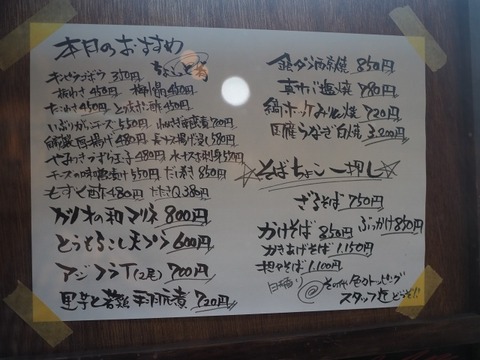 本日のおすすめ
ちょっと
キンピラゴボウ 350円
板わさ 450円 450円
たこわさ 450円 とりネギ酢 450円
いぶりがっこチーズ 550円 700円
480円 長芋 揚げ 580円
480円 水ナスお刺身 570円
チーズの味噌漬け 550円 だし巻き 850円
もずく酢 480円 380円
カツオの和マリネ 800円
とうもろこし天プラ 600円
アジフライ(2尾) 700円
里芋と若鶏 手羽元煮 720円
銀ダラ西京焼 850円
塩焼 780円
縞ホッケみりん焼 720円
国産うなぎ白焼 3,200円
☆そばちゃん一押し☆
ざるそば 750円
かけそば 850円 ぶっかけ 850円
かきあげそば 1,150円
担々そば 1,100円
日替り
@その他 トッピング
スタッフ迄どうぞ!!